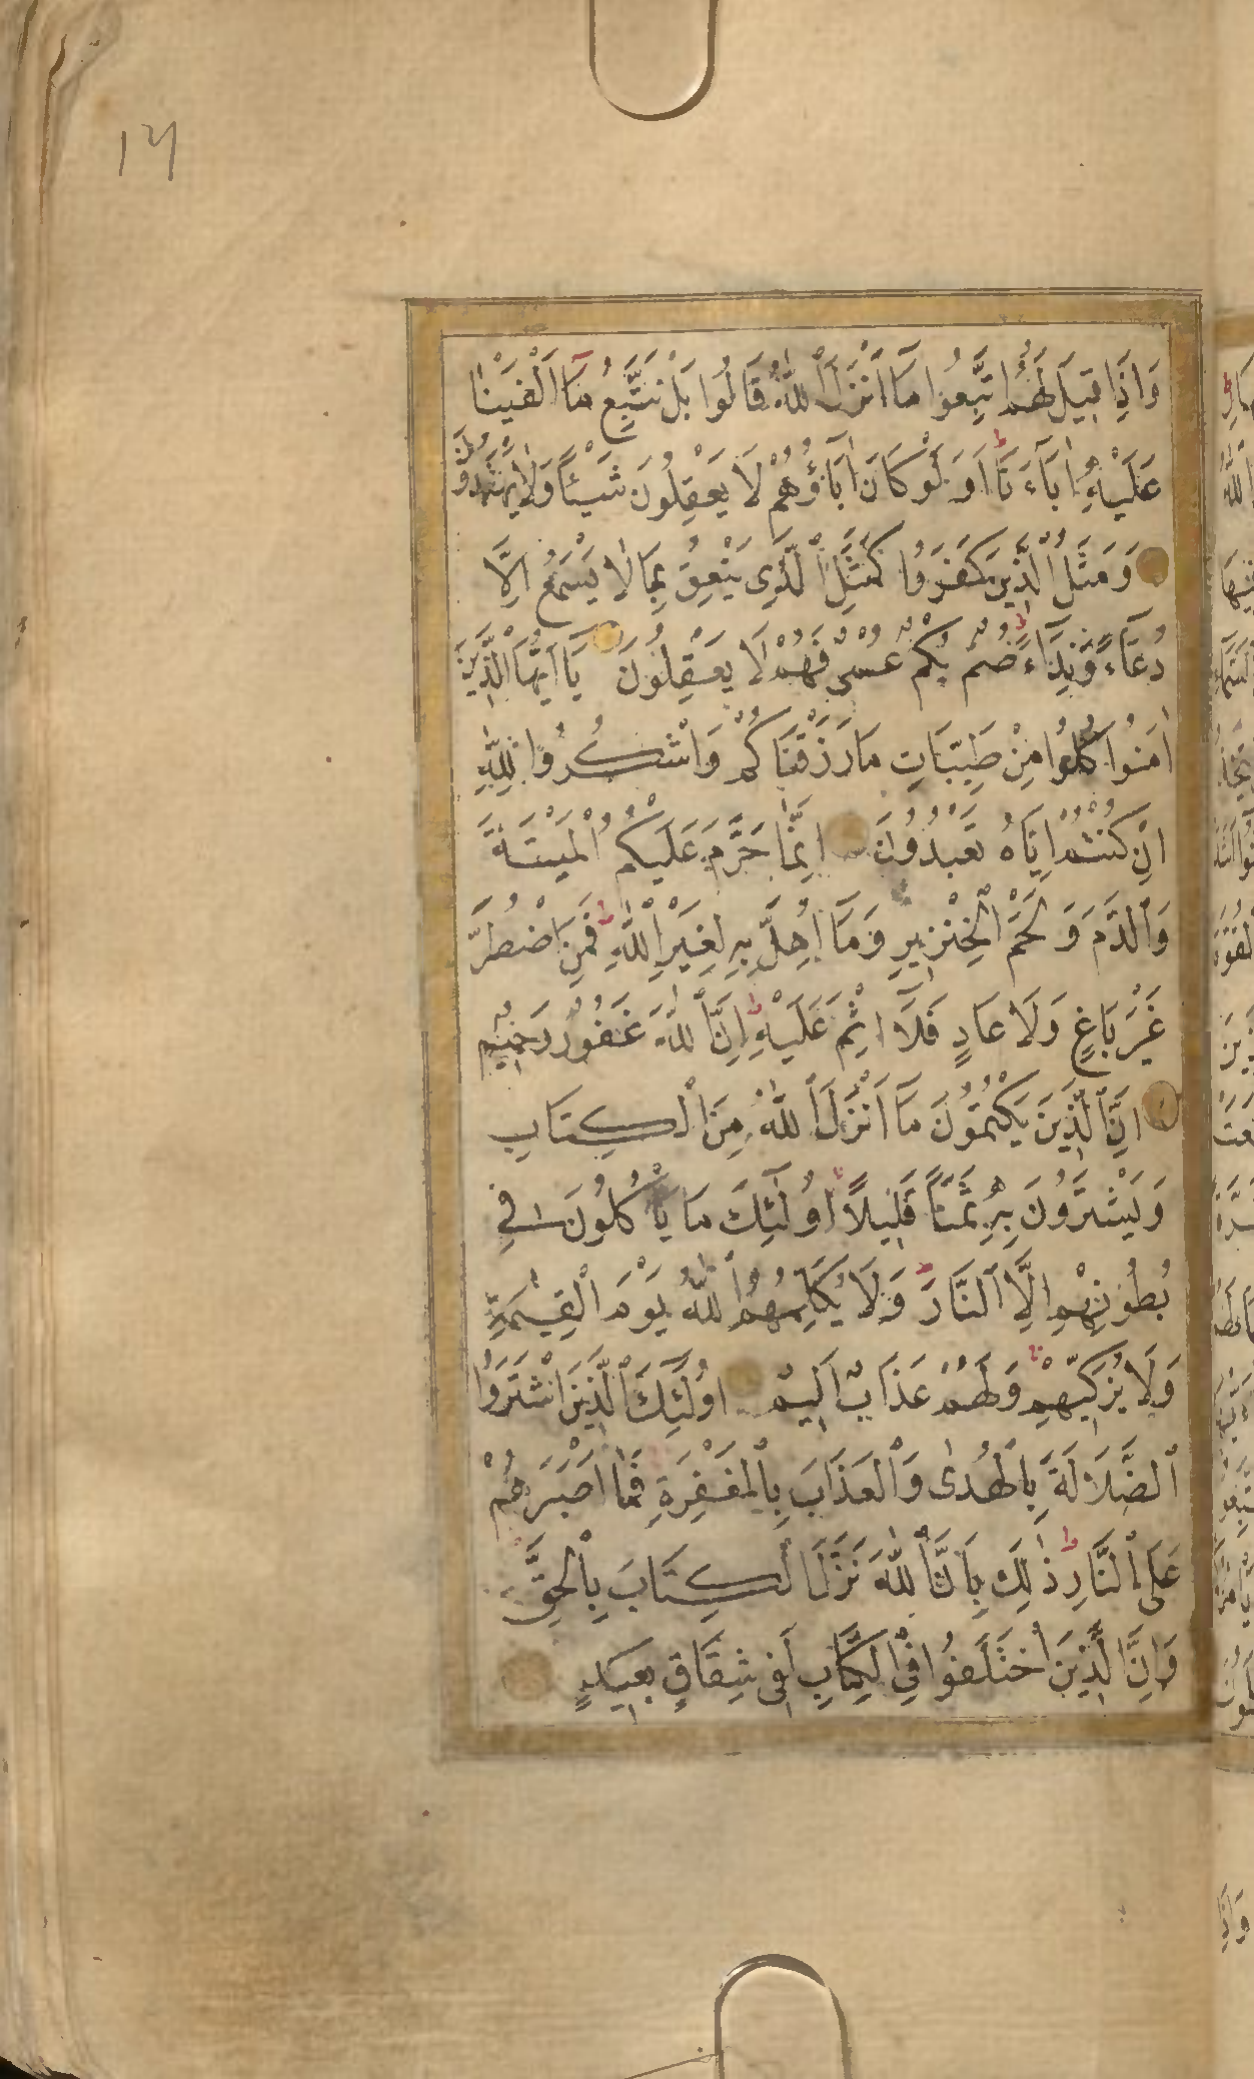 14
وَاِذَا قٖيلَ لَهُمُ اتَّبِعُوا مَٓا اَنْزَلَ اللّٰهُ قَالُوا بَلْ نَتَّبِعُ مَٓا اَلْفَيْنَا
عَلَيْهِ اٰبَٓاءَنَا اَوَلَوْ كَانَ اٰبَٓاؤُهُمْ لَا يَعْقِلُونَ شَيْئًا وَلَا يَهْتَدُونَ
وَمَثَلُ الَّذٖينَ كَفَرُوا كَمَثَلِ الَّذٖى يَنْعِقُ بِمَا لَا يَسْمَعُ اِلَّا
دُعَٓاءً وَنِدَٓاءً صُمٌّ بُكْمٌ عُمْىٌ فَهُمْ لَا يَعْقِلُونَ يَٓا اَيُّهَا الَّذٖينَ
اٰمَنُوا كُلُوا مِنْ طَيِّبَاتِ مَا رَزَقْنَاكُمْ وَاشْكُرُوا لِلّٰهِ
اِنْ كُنْتُمْ اِيَّاهُ تَعْبُدُونَ اِنَّمَا حَرَّمَ عَلَيْكُمُ الْمَيْتَةَ
وَالدَّمَ وَلَحْمَ الْخِنْزٖيرِ وَمَٓا اُهِلَّ بِهٖ لِغَيْرِ اللّٰهِ فَمَنِ اضْطُرَّ
غَيْرَ بَاغٍ وَلَا عَادٍ فَلَٓا اِثْمَ عَلَيْهِ اِنَّ اللّٰهَ غَفُورٌ رَحٖيمٌ
اِنَّ الَّذٖينَ يَكْتُمُونَ مَٓا اَنْزَلَ اللّٰهُ مِنَ الْكِتَابِ
وَيَشْتَرُونَ بِهٖ ثَمَنًا قَلٖيلًا اُولٰٓئِكَ مَا يَاْكُلُونَ فٖى
بُطُونِهِمْ اِلَّا النَّارَ وَلَا يُكَلِّمُهُمُ اللّٰهُ يَوْمَ الْقِيٰمَةِ
وَلَا يُزَكّٖيهِمْ وَلَهُمْ عَذَابٌ اَلٖيمٌ اُولٰٓئِكَ الَّذٖينَ اشْتَرَوُا
الضَّلَالَةَ بِالْهُدٰى وَالْعَذَابَ بِالْمَغْفِرَةِ فَمَٓا اَصْبَرَهُمْ
عَلَى النَّارِ ذٰلِكَ بِاَنَّ اللّٰهَ نَزَّلَ الْكِتَابَ بِالْحَقِّ
وَاِنَّ الَّذٖينَ اخْتَلَفُوا فِى الْكِتَابِ لَفٖى شِقَاقٍ بَعٖيدٍ